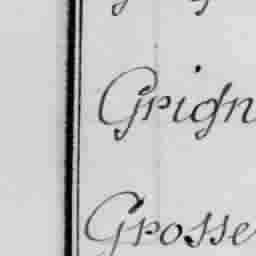 Grign
Grosse